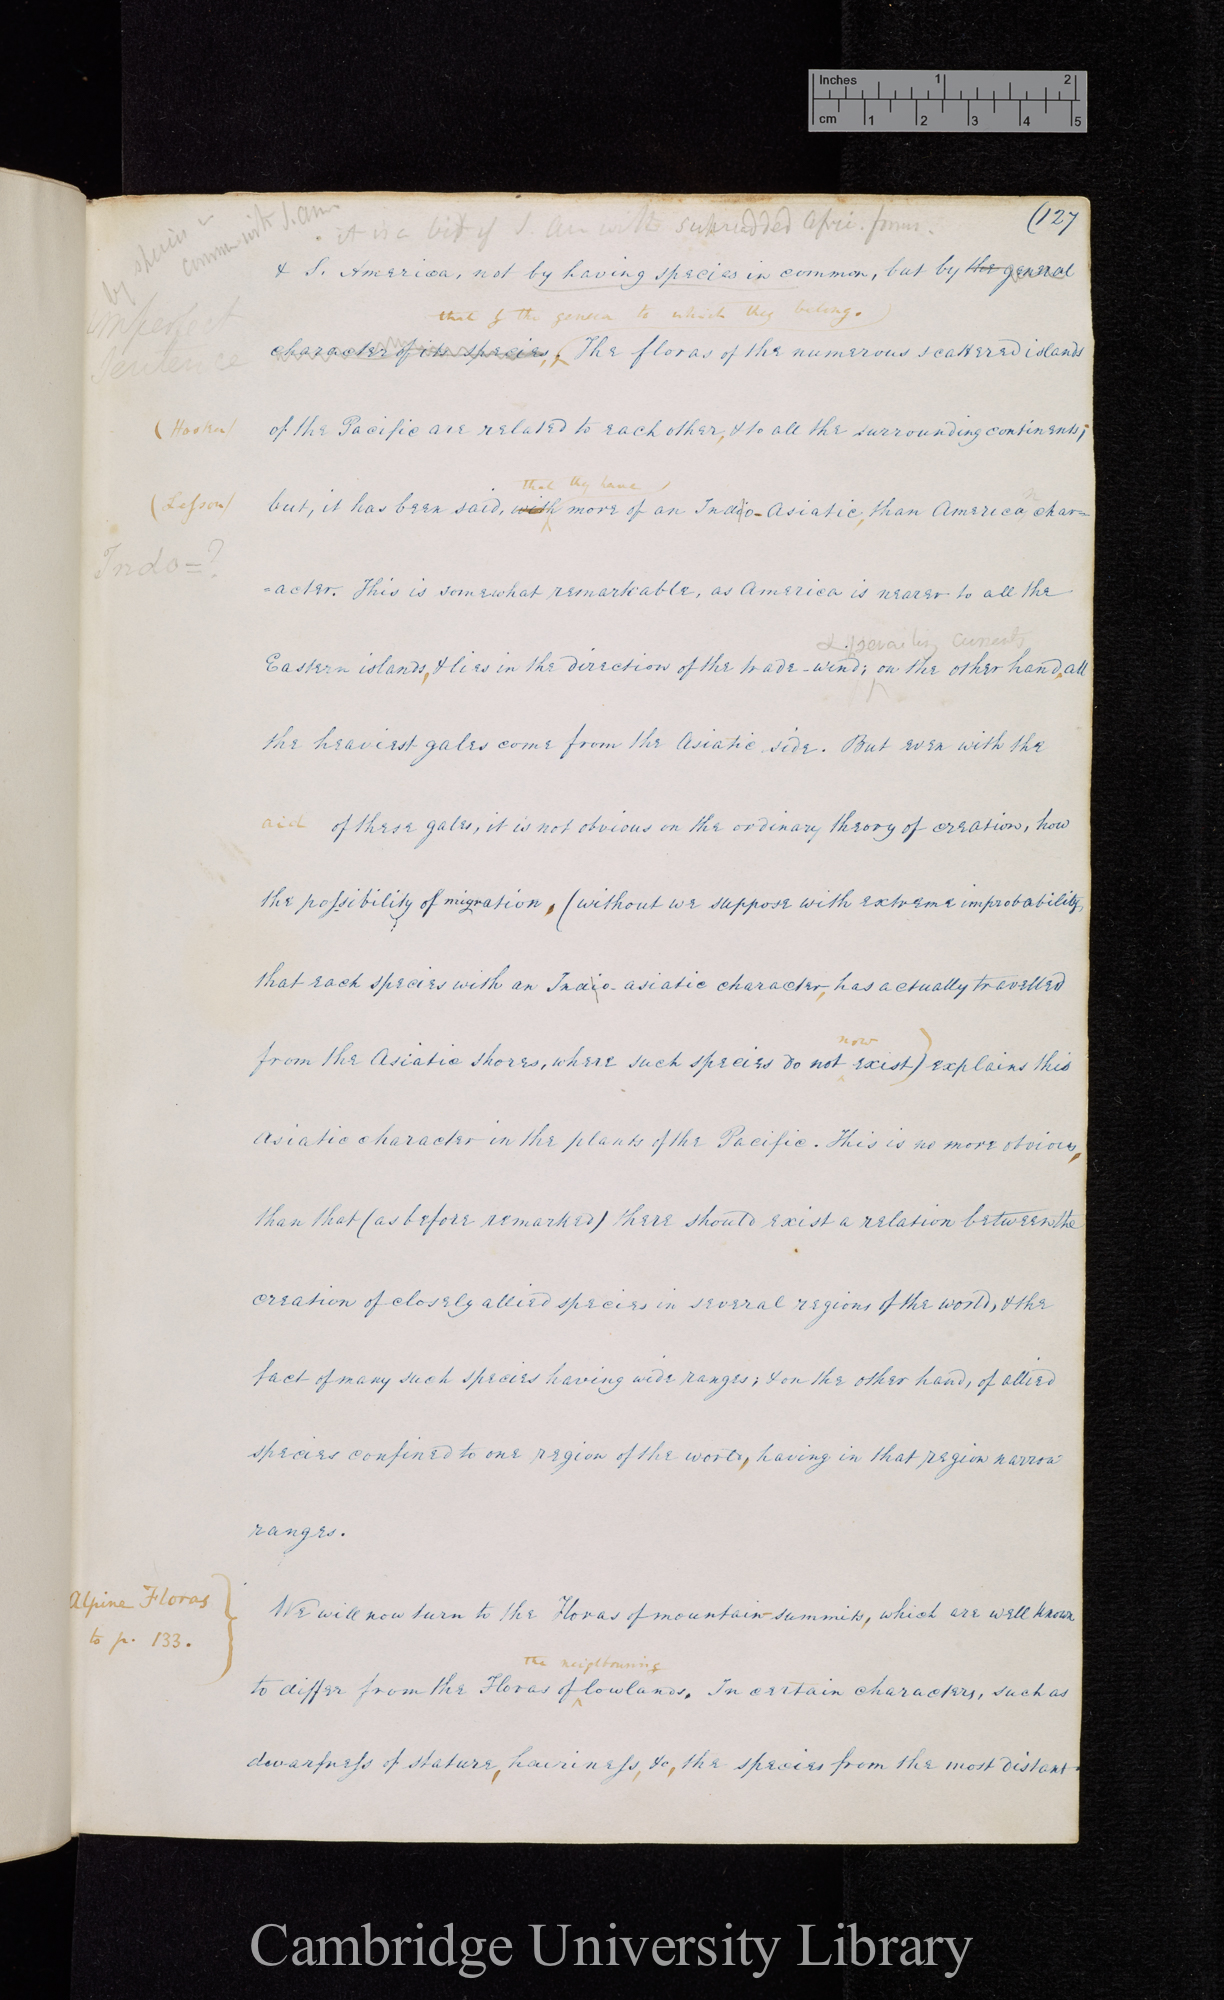 Inches 1 2
cm 1 2 3 4 5
(127
species in
common with S. Am
it is a bit of S. Am with superadded Afri. forms.
& S. America, not by having species in common, but by the general
by
imperfect
Sentence
that of the genera to which they belong.)
character of its species, The floras of the numerous scattered islands
(Hooker)
of the Pacific are related to each other, & to all the surrounding continents;
that they have
(Lesson)
but, it has been said, with more of an Indio-Asiatic, than American char=
Indo=?
=acter. This is somewhat remarkable, as America is nearer to all the
& prevailing currents
Eastern islands, & lies in the direction of the trade-wind; on the other hand, all
the heaviest gales come from the Asiatic side. But even with the
aid of these gales, it is not obvious on the ordinary theory of creation, how
the possibility of migration, (without we suppose with extreme improbability,
that each species with an Indio-asiatic character, has actually travelled
now
from the Asiatic shores, where such species do not exist) explains this
Asiatic character in the plants of the Pacific. This is no more obvious,
than that (as before remarked) there should exist a relation between the
creation of closely allied species in several regions of the world, & the
fact of many such species having wide ranges; & on the other hand, of allied
species confined to one region of the world, having in that region narrow
ranges.
Alpine Floras
to p. 133.
We will now turn to the Floras of mountain-summits, which are well known
the neighbouring
to differ from the Floras of lowlands. In certain characters, such as
dwarfness of stature, hairiness, &c, the species from the most distant
Cambridge University Library